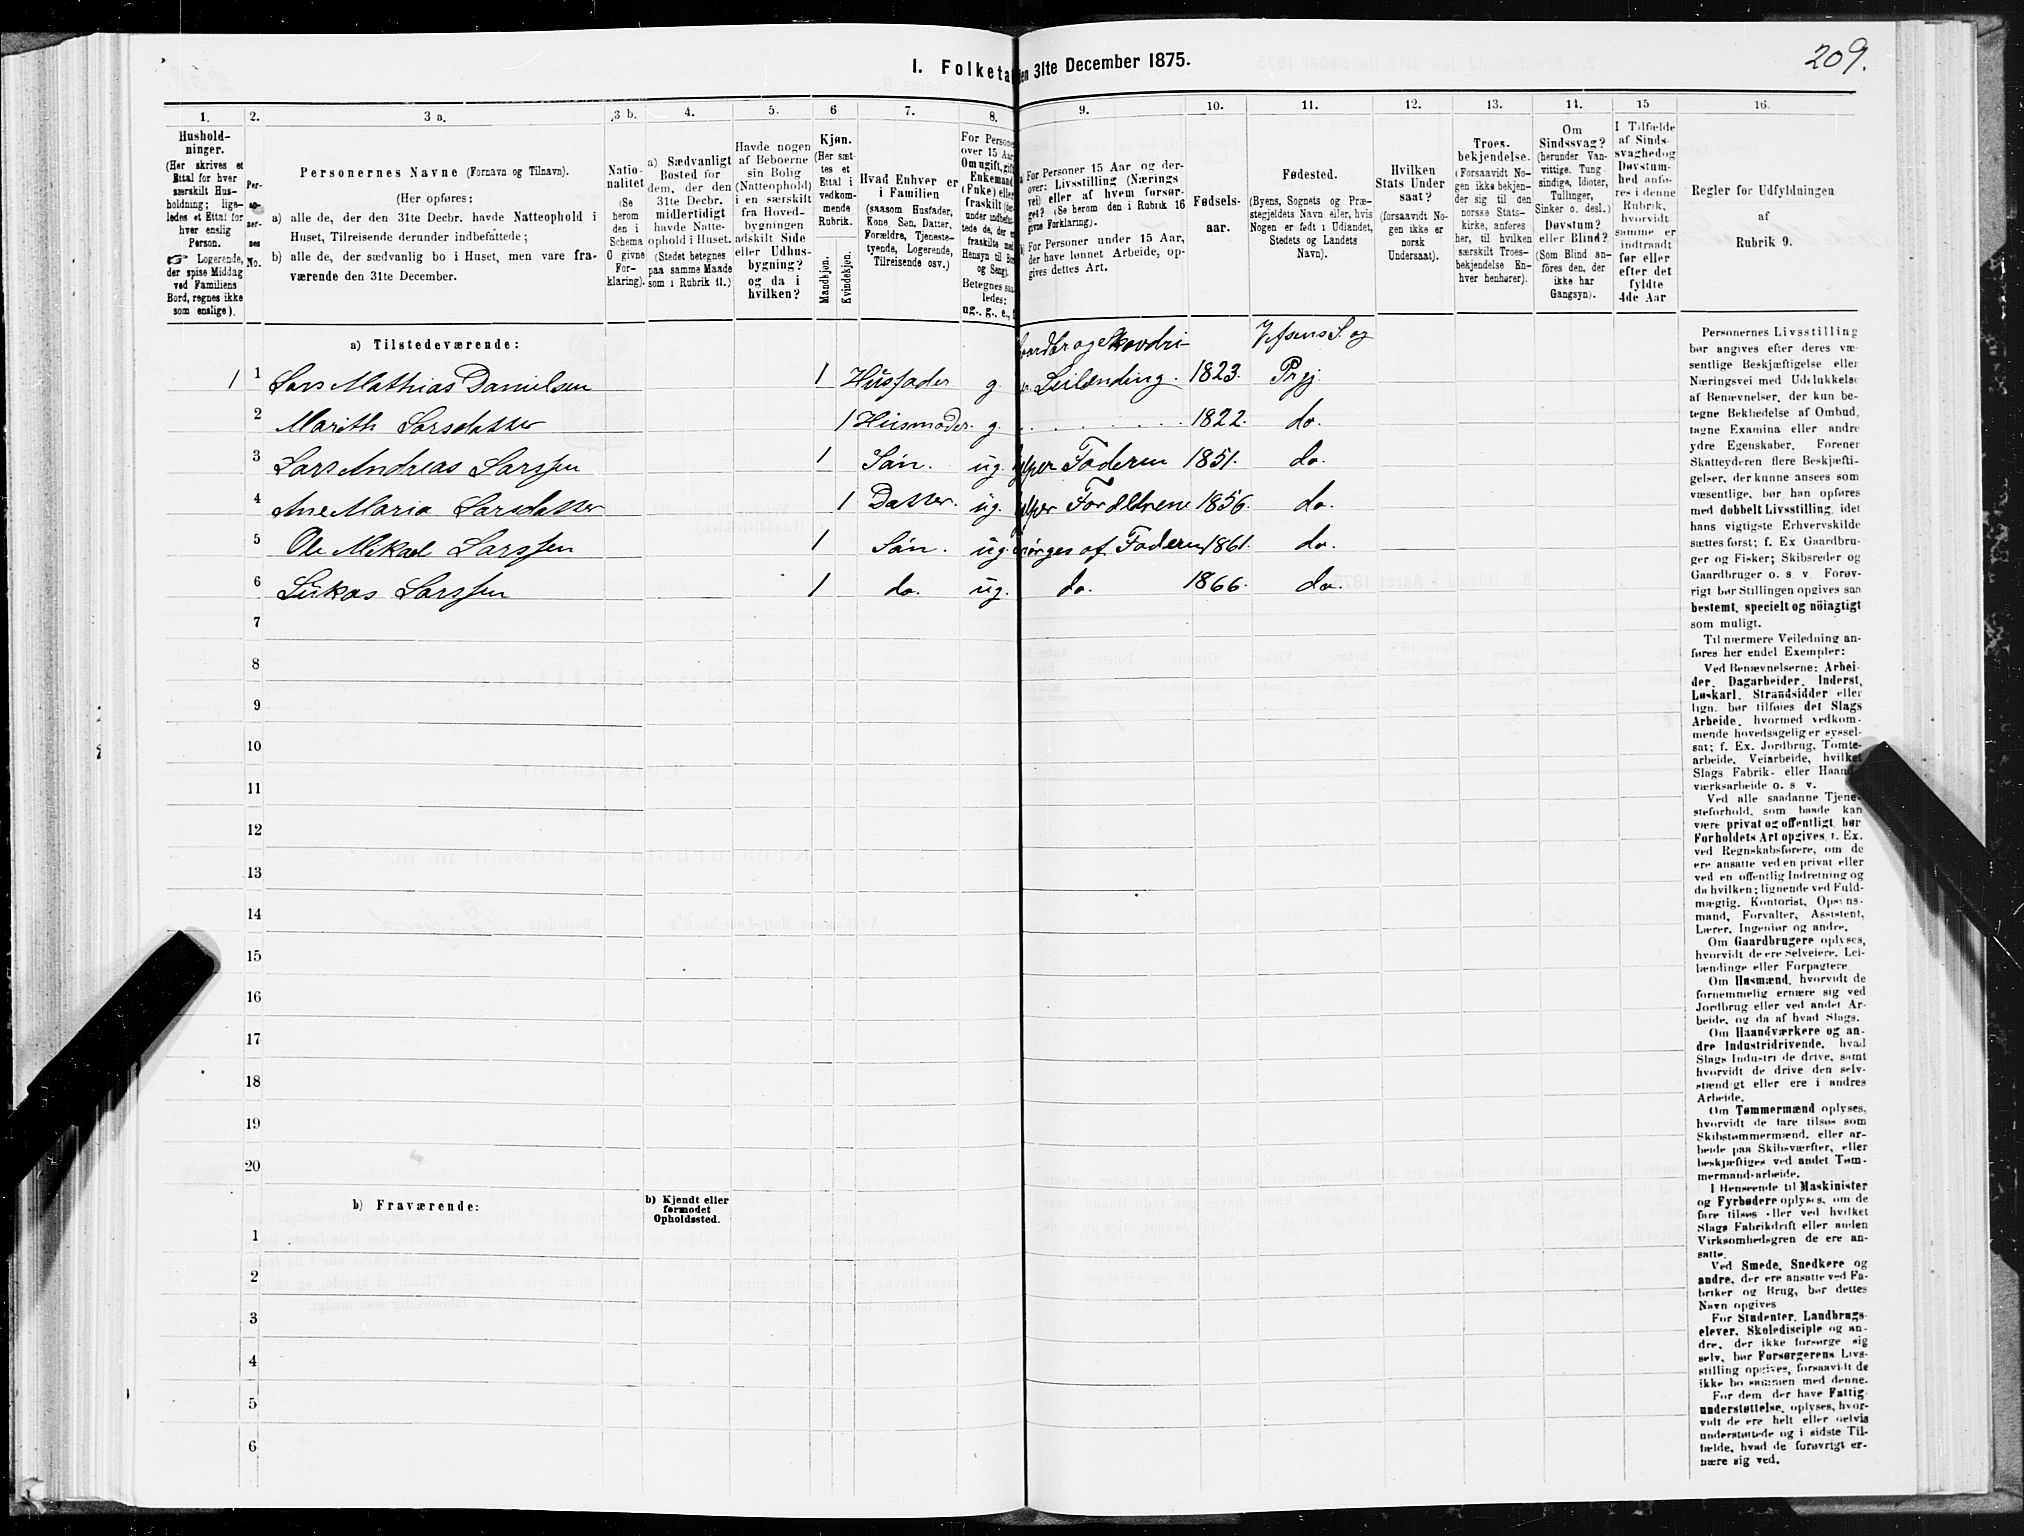 209.
I. Folketa
en 31te December 1875.
1. 2. 3 a. 3 b. 4. 5. 6 7. 8. 9. 10. 11. 12. 13. 14. 15 16.
Hushold-
ninger.
(Her skrives et
Ettal for hver
særskilt Hus-
holdning; lige-
ledes et Ettal for
hver enslig
Person.
Logerende,
der spise Middag
ved Familiens
Bord, regnes ikke
som enslige).
Per-
so-
ner-
nes
No.
Personernes Navne (Fornavn og Tilnavn).
(Her opføres:
a) alle de, der den 31te Decbr. havde Natteophold i
Huset, Tilreisende derunder indbefattede;
b) alle de, der sædvanlig bo i Huset, men vare fra-
værende den 31te December.
Natio-
nalitet
(Se
herom
den i
Schema
O givne
For-
klaring).
a) Sædvanligt
Bosted for
dem, der den
31te Decbr.
midlertidigt
havde Natte-
ophold i Huset.
(Stedet betegnes
paa samme Maade
som i Rubrik 11.)
Havde nogen
af Beboerne
sin Bolig
(Natteophold)
i en særskilt
fra Hoved-
bygningen
adskilt Side
eller Udhus-
bygning?
og da i
hvilken?
Kjøn.
(Her sæt-
tes et
Ettal i
vedkom-
mende
Rubrik.
Mandkjøn.
Kvindekjøn.
Hvad Enhver er
i Familien
(saasom Husfader,
Kone, Søn, Datter,
Forældre, Tjeneste-
tyende, Logerende,
Tilreisende osv.)
For Persone
over 15 Aar
Om ugift, gift
Enkemand
(Enke) eller
fraskilt
Betegnes saa
ledes:
ug., g., e., f
For Personer 15 Aar og der-
over: Livsstilling (Nærings
vei) eller af hvem forsør-
get? (Se herom den i Rubrik 16
givne Forklaring).
For Personer under 15 Aar,
der have lønnet Arbeide, op-
gives dettes Art.
Fødsels-
aar.
Fødested.
(Byens, Sognets og Præ-
stegjeldets Navn eller, hvis
Nogen er født i Udlandet,
Stedets og Landets
Navn).
Hvilken
Stats Under
saat?
(forsaavidt No-
gen ikke er
norsk
Undersaat).
Troes-
bekjendelse.
(Forsaavidt No-
gen ikke bekjen-
der sig til den
norske Stats-
kirke, anføres
her, til hvilken
særskilt Troes-
bekjendelse En-
hver henhører).
Om
Sindssvag?
(herunder Van-
vittige, Tung
sindige, Idioter,
Tullinger,
Sinker o. desl.)
Døvstum?
eller Blind?
(Som Blind an-
føres den, der
ikke har
Gangsyn).
I Tilfælde
af Sinds-
svaghed og
Døvstum-
hed anfø-
res i denne
Rubrik,
hvorvidt
samme er
indtraadt
før eller
efter det
fyldte
4de Aar
Regler for Udfyldningen
af
Rubrik 9.
a) Tilstedeværende:
1 1 Lars Mathias Danielsen 1 Husfader g. Leilending. 1823. Vefsens S. og Prgj.
2 Marith Larsdatter 1 Husmoder. g. 1822. do.
3 Lars Andreas Larssen 1 Søn. ug. Faderen 1851. do.
4 Ane Maria Larsdatter 1 Datter. ug. Forældrene 1856. do.
5 Ole Mikael Larssen 1 Søn. ug. af Faderen 1861. do.
6 Lukas Larssen 1 do. ug. do. 1866. do.
7
8
9
10
11
12
13
14
15
16
17
18
19
20
b) Fraværende:
b) Kjendt eller
formodet
Opholdssted.
1
2
3
4
5
6
Personernes Livsstilling
bør angives efter deres væ-
sentlige Beskjæftigelse eller
Næringsvei med Udelukkelse
af Benævnelser, der kun be-
tegne Beklædelse af Ombud,
tagne Examina eller andre
ydre Egenskaber. Forener
Skatteyderen flere Beskjæfti-
gelser, der kunne ansees som
væsentlige, bør han opføres
med dobbelt Livsstilling, idet
hans vigtigste Erhvervskilde
sættes først; f. Ex Gaardbru-
ger og Fisker; Skibsreder og
Gaardbruger o. s. v. Forøv-
rigt bør Stillingen opgives saa
bestemt, specielt og nöiagtigt
som muligt.
Til nærmere Veiledning an-
føres her endel Exempler:
Ved Benævnelserne: Arbei-
der, Dagarbeider, Inderst,
Løskarl, Strandsidder eller
lign. bør tilføies det Slags
Arbeide, hvormed vedkom-
mende hovedsagelig er syssel-
sat; f. Ex. Jordbrug, Tomte-
arbeide, Veiarbeide, hvilket
Slags Fabrik- eller Haand-
værksarbeide o. s v.
Ved alle saadanne Tjene-
steforhold, som baade kan
være privat og offentligt, bør
Forholdets Art opgives, f. Ex.
ved Regnskabsførere, om de
ere ansatte ved en privat eller
ved en offentlig Indretning og
da hvilken; lignende ved Fuld-
mægtig, Kontorist, Opsyns-
mand, Forvalter, Assistent,
Lærer, Ingeniør og andre.
Om Gaardbrugere oplyses,
hvorvidt de ere Selveiere, Lei-
lændinge eller Forpagtere.
Om Husmænd, hvorvidt de
fornemmelig ernære sig ved
Jordbrug eller ved andet Ar-
beide, og da af hvad Slags.
Om Haandværkere og an-
dre Industridrivende, hvad
Slags Industri de drive, samt
hvorvidt de drive den selv-
stændigt eller ere i andres
Arbeide.
Om Tømmermænd oplyses,
hvorvidt de fare tilsøs som
Skibstømmermænd, eller ar-
beide paa Skibsværfter, eller
beskjæftiges ved andet Tøm-
mermandsarbeide.
I Henseende til Maskinister
og Fyrbødere oplyses, om de
fare tilsøs eller ved hvilket
Slags Fabrikdrift eller anden
Virksomhedsgren de ere an-
satte.
Ved Smede, Snedkere og
andre, der ere ansatte ved Fa-
briker og Brug, bør dettes
Navn opgives
For Studenter, Landbrugs-
elever, Skoledisciple og an-
dre, der ikke forsørge sig
selv, bør Forsørgerens Livs-
stilling opgives, forsaavidt de
ikke bo sammen med denne.
For dem, der have Fattig-
understøttelse, oplyses, hvor-
vidt de ere helt eller delvis
understøttede og i sidste Til-
fælde, hvad de forøvrigt er-
nære sig ved.